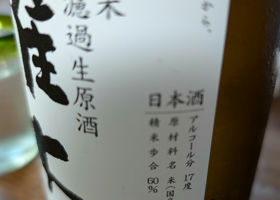 から、
濾過生原酒
日本酒
アルコール分 17度
原材料名 米(国
精米歩合 60%